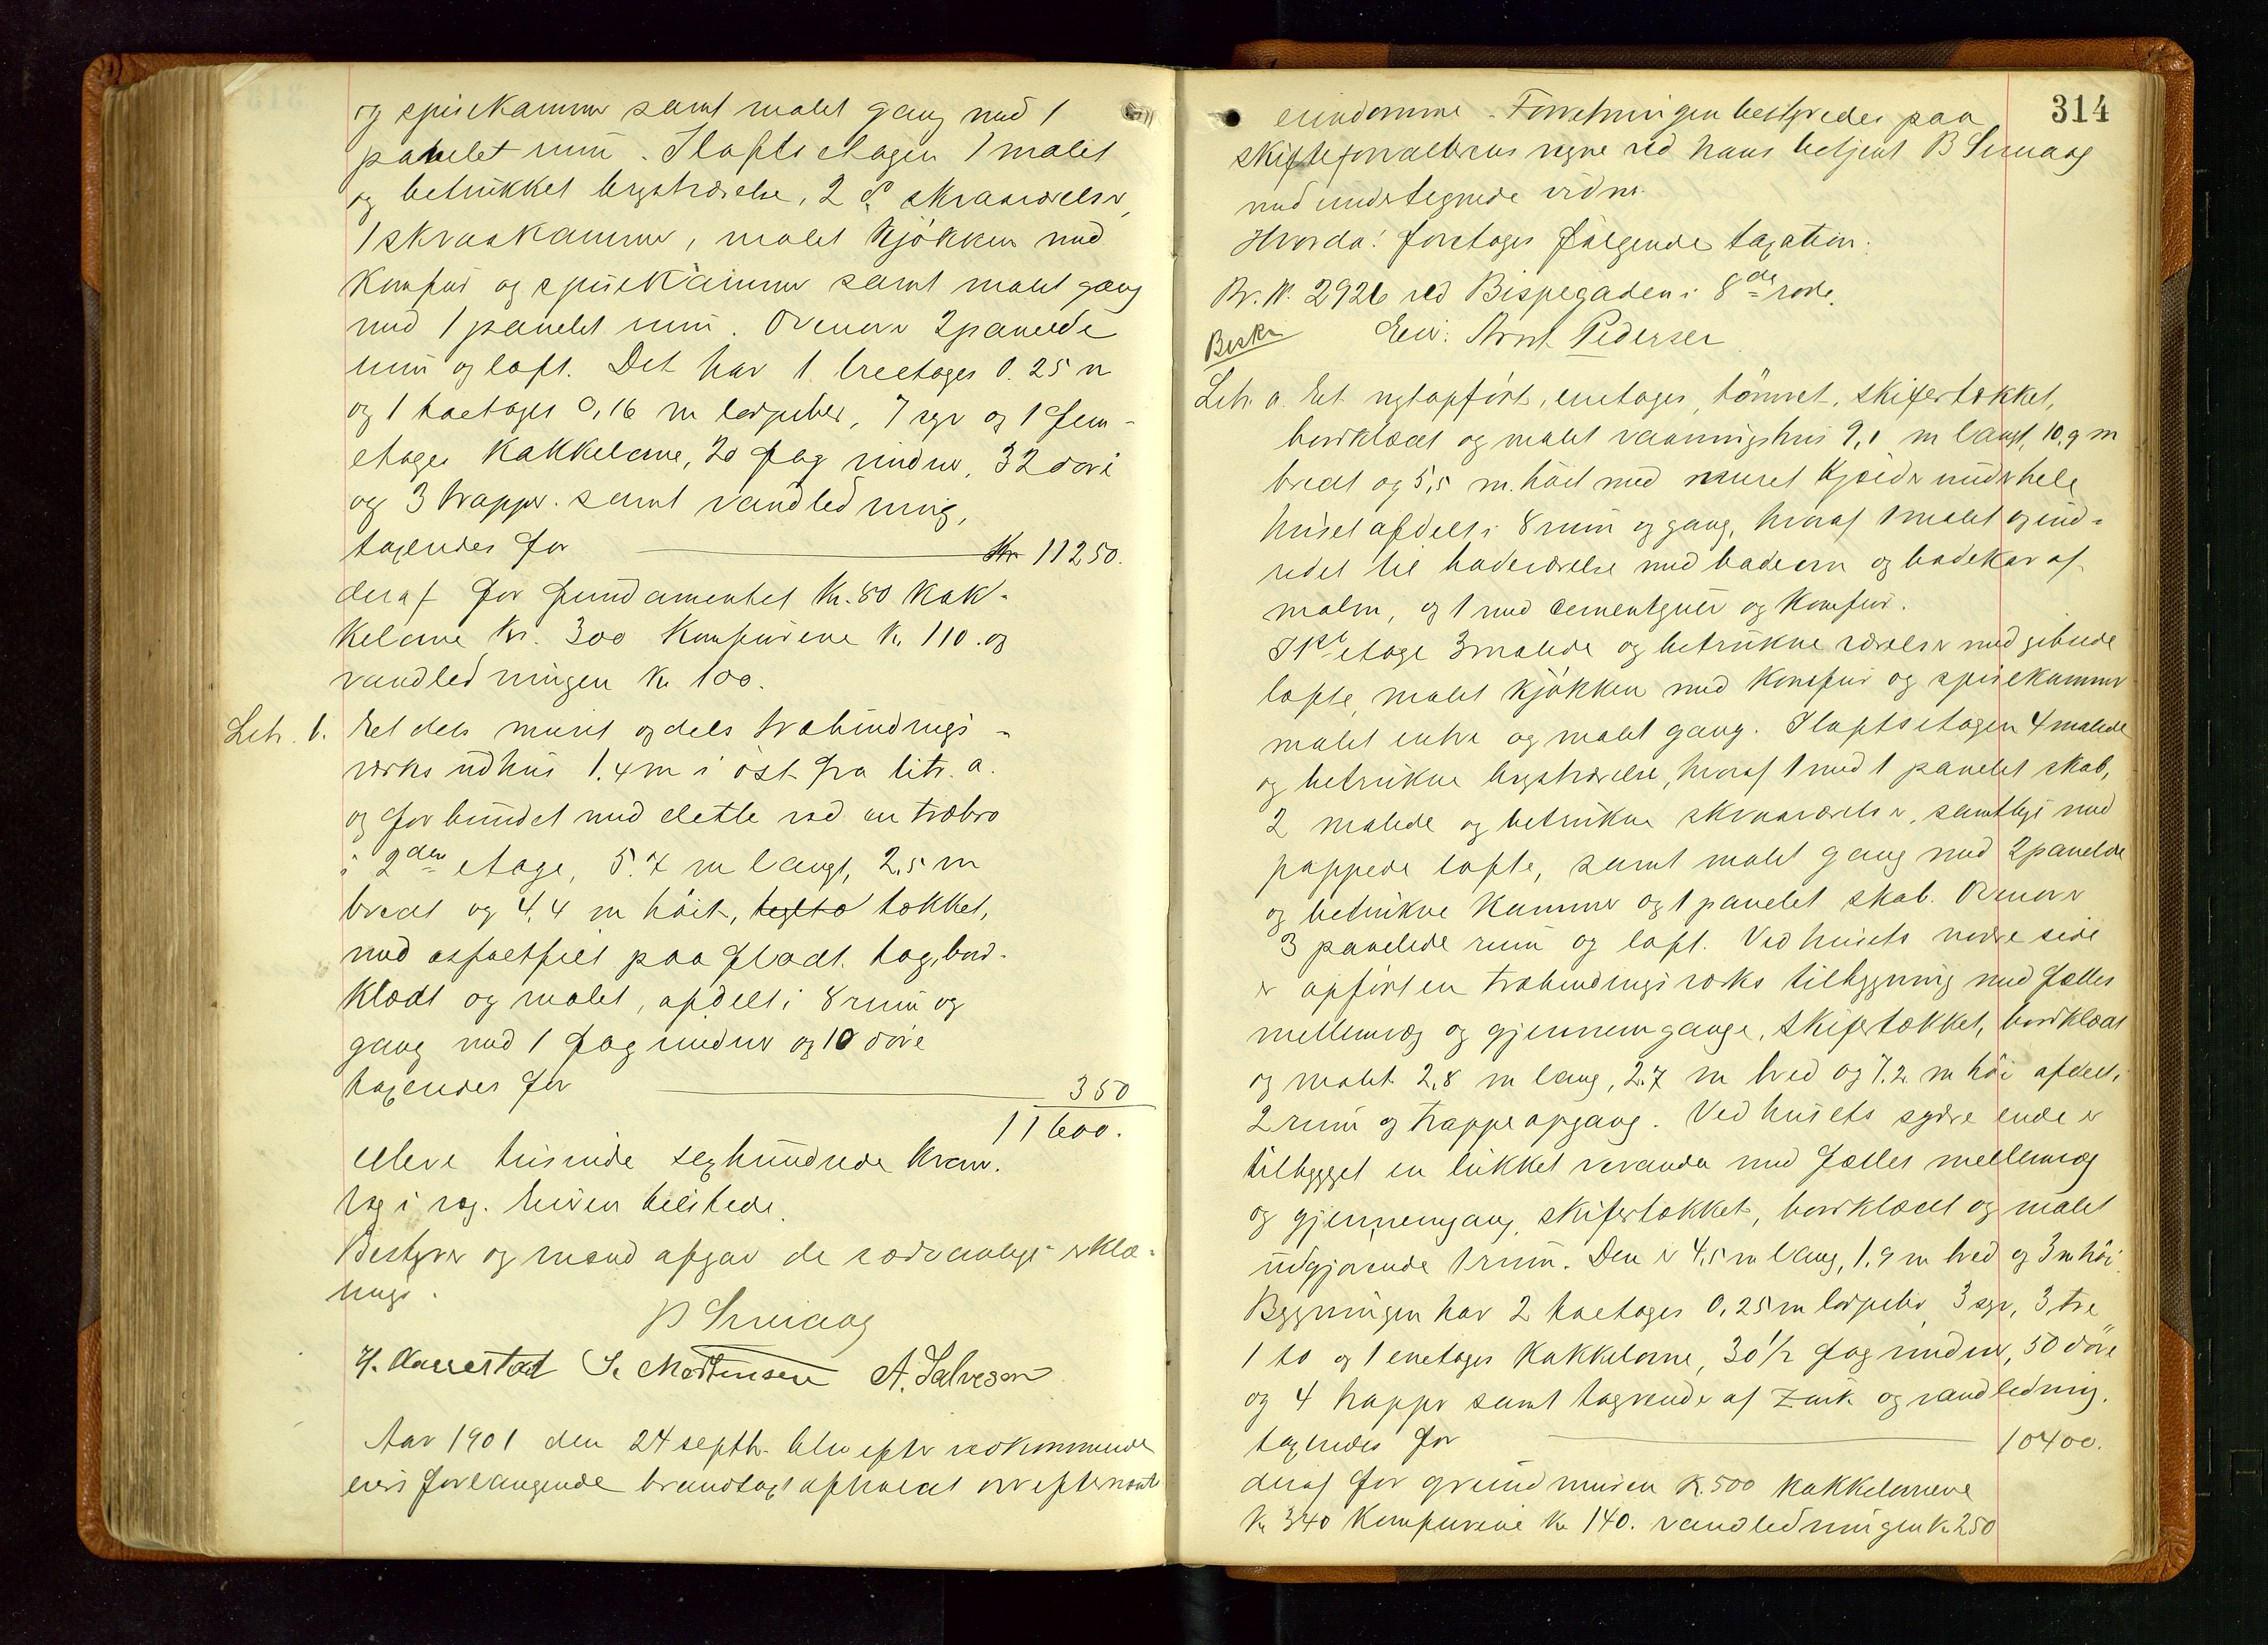 og spisekammer samt malet gang med 1
panelet rum. I loftsetagen 1 malet
og betrukket kvistværelse, 2 do skraaværelser,
1 skraakammer, malet kjøkken med
komfur og spisekammer samt malet gang
med 1 panelet rum. Ovenover 2 panelede
rum og loft. Det har 1 treetages 0.25 m
og 1 toetages 0,16 m lorpiber, 7 syv og 1 fem-
etages kakkelovne, 20 fag vinduer, 32 døre
og 3 trapper samt vandledning,
taxeredes for Kr 11250.
deraf for fundamentet Kr. 80 kak-
kelovne Kr. 300 komfurene Kr 110. og
vandledningen Kr 100.
Litr. b. Et dels muret og dels træbindings-
verks udhus 1.4 m i øst fra litr. a.
og forbundet med dette ved en træbro
i 2den etage, 5.7 m langt, 2,5 m
bredt og 4,4 m høit, teglta tækket,
med asfaltfilt paa fladt tag, bord-
klædt og malet, afdelt i 8 rum og
gang med 1 fag vinduer og 10 døre
taxeredes for 350
11600.
elleve tusinde sexhundrede kron.
Væg i væg. Eieren tilstede.
Bestyrer og mænd afgav de sædvanlige erklæ-
ringe.
B Smaag
H. Aarrestad S. Mortensen A. Salvesen
Aar 1901 den 24 septbr. blev efter vedkommende
eiers forlangende brandtaxt afholdt over efternævnte
314
eiendomme. Forretningen bestyredes paa
skifteforvalterens vegne ved hans betjent B Smaag
med undertegnede vidner.
Hvorda! foretoges følgende taxation:
Br. N. 2926 ved Bispegaden i 8de rode.
Beskr. Eier: Arnt Pedersen
Litr. a. Et nyopført, enetages, tømret, skifertækket,
bordklædt og malet vaaningshus 9,1 m langt, 10,9 m
bredt og 5,5 m. høit med muret kjælder under hele
huset afdelt i 8 rum og gang, hvoraf 1 malet og ind-
redet til badeværelse med badeovn og badekar af
malm, og 1 med cementgulv og komfur.
I 1ste etage 3 malede og betrukne værelser med gibsede
lofte, malet kjøkken med komfur og spisekammer
malet entre og malet gang. I loftsetagen 4 malede
og betrukne kvistværelse, hvoraf 1 med 1 panelet skab,
2 malede og betrukne skraaværelser, samtlige med
pappede lofte, samt malet gang med 2 panelede
og betrukne kammer og 1 panelet skab. Ovenover
3 panelede rum og loft. Ved husets nordre side
er opført en træbindingsverks tilbygning med fælles
mellemvæg og gjennemgange, skifertækket, bordklædt
og malet 2,8 m lang, 2,7 m bred og 7.2 m høi afdelt i
2 rum og trappeopgang. Ved husets søndre ende er
tilbygget en lukket veranda med fælles mellemvæg
og gjennemgang, skifertækket, bordklædt og malet
udgjørende 1 rum. Den er 4,5 m lang, 1,9 m bred og 3 m høi.
Bygningen har 2 toetages 0,25 m lorpiber, 3 syv, 3 tre
1 to og 1 enetages kakkelovne, 30 1/2 fag vinduer, 50 døre
og 4 trapper samt tagrender af zink og vandledning.
taxeredes for 10400.
deraf for grundmuren K. 500 kakkelovnene
Kr 340 komfurene Kr 140. vandledningen Kr 250